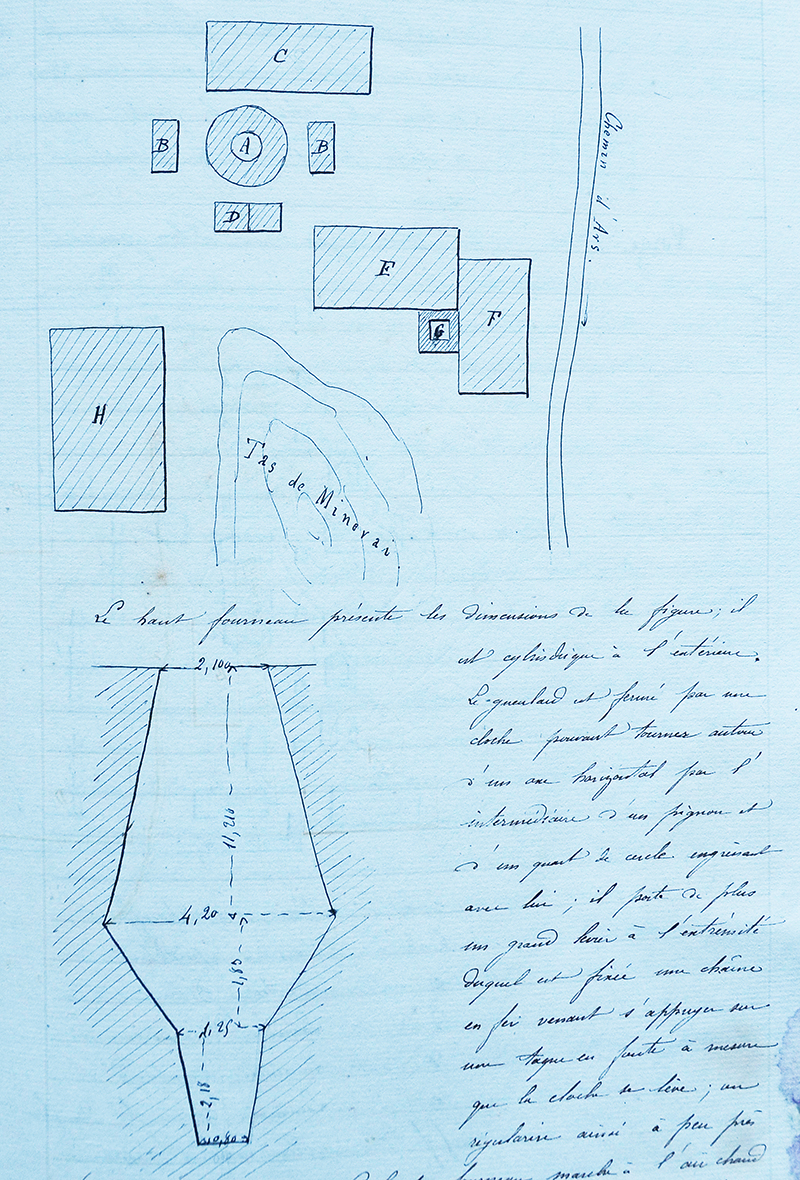 C
B
A
B
D
E
F
G
H
Chemin d'Ars.
Tas de Minerai
Le haut fourneau présente les dimensions de la figure; il
est cylindrique à l'extérieur.
Le gueulard est fermé par une
cloche pouvant tourner autour
d'un axe horizontal par l'
intermédiaire d'un pignon et
d'un quart de cercle engrénant
avec lui; il porte de plus
un grand levier à l'extrémité
duquel est fixée une chaîne
en fer venant s'appuyer sur
une taque en fonte à mesure
que la cloche se lève; on
régularise ainsi à peu près
fourneau marche à l'air chaud
2,100
11,210
4,20
1,25
2,18
0,80